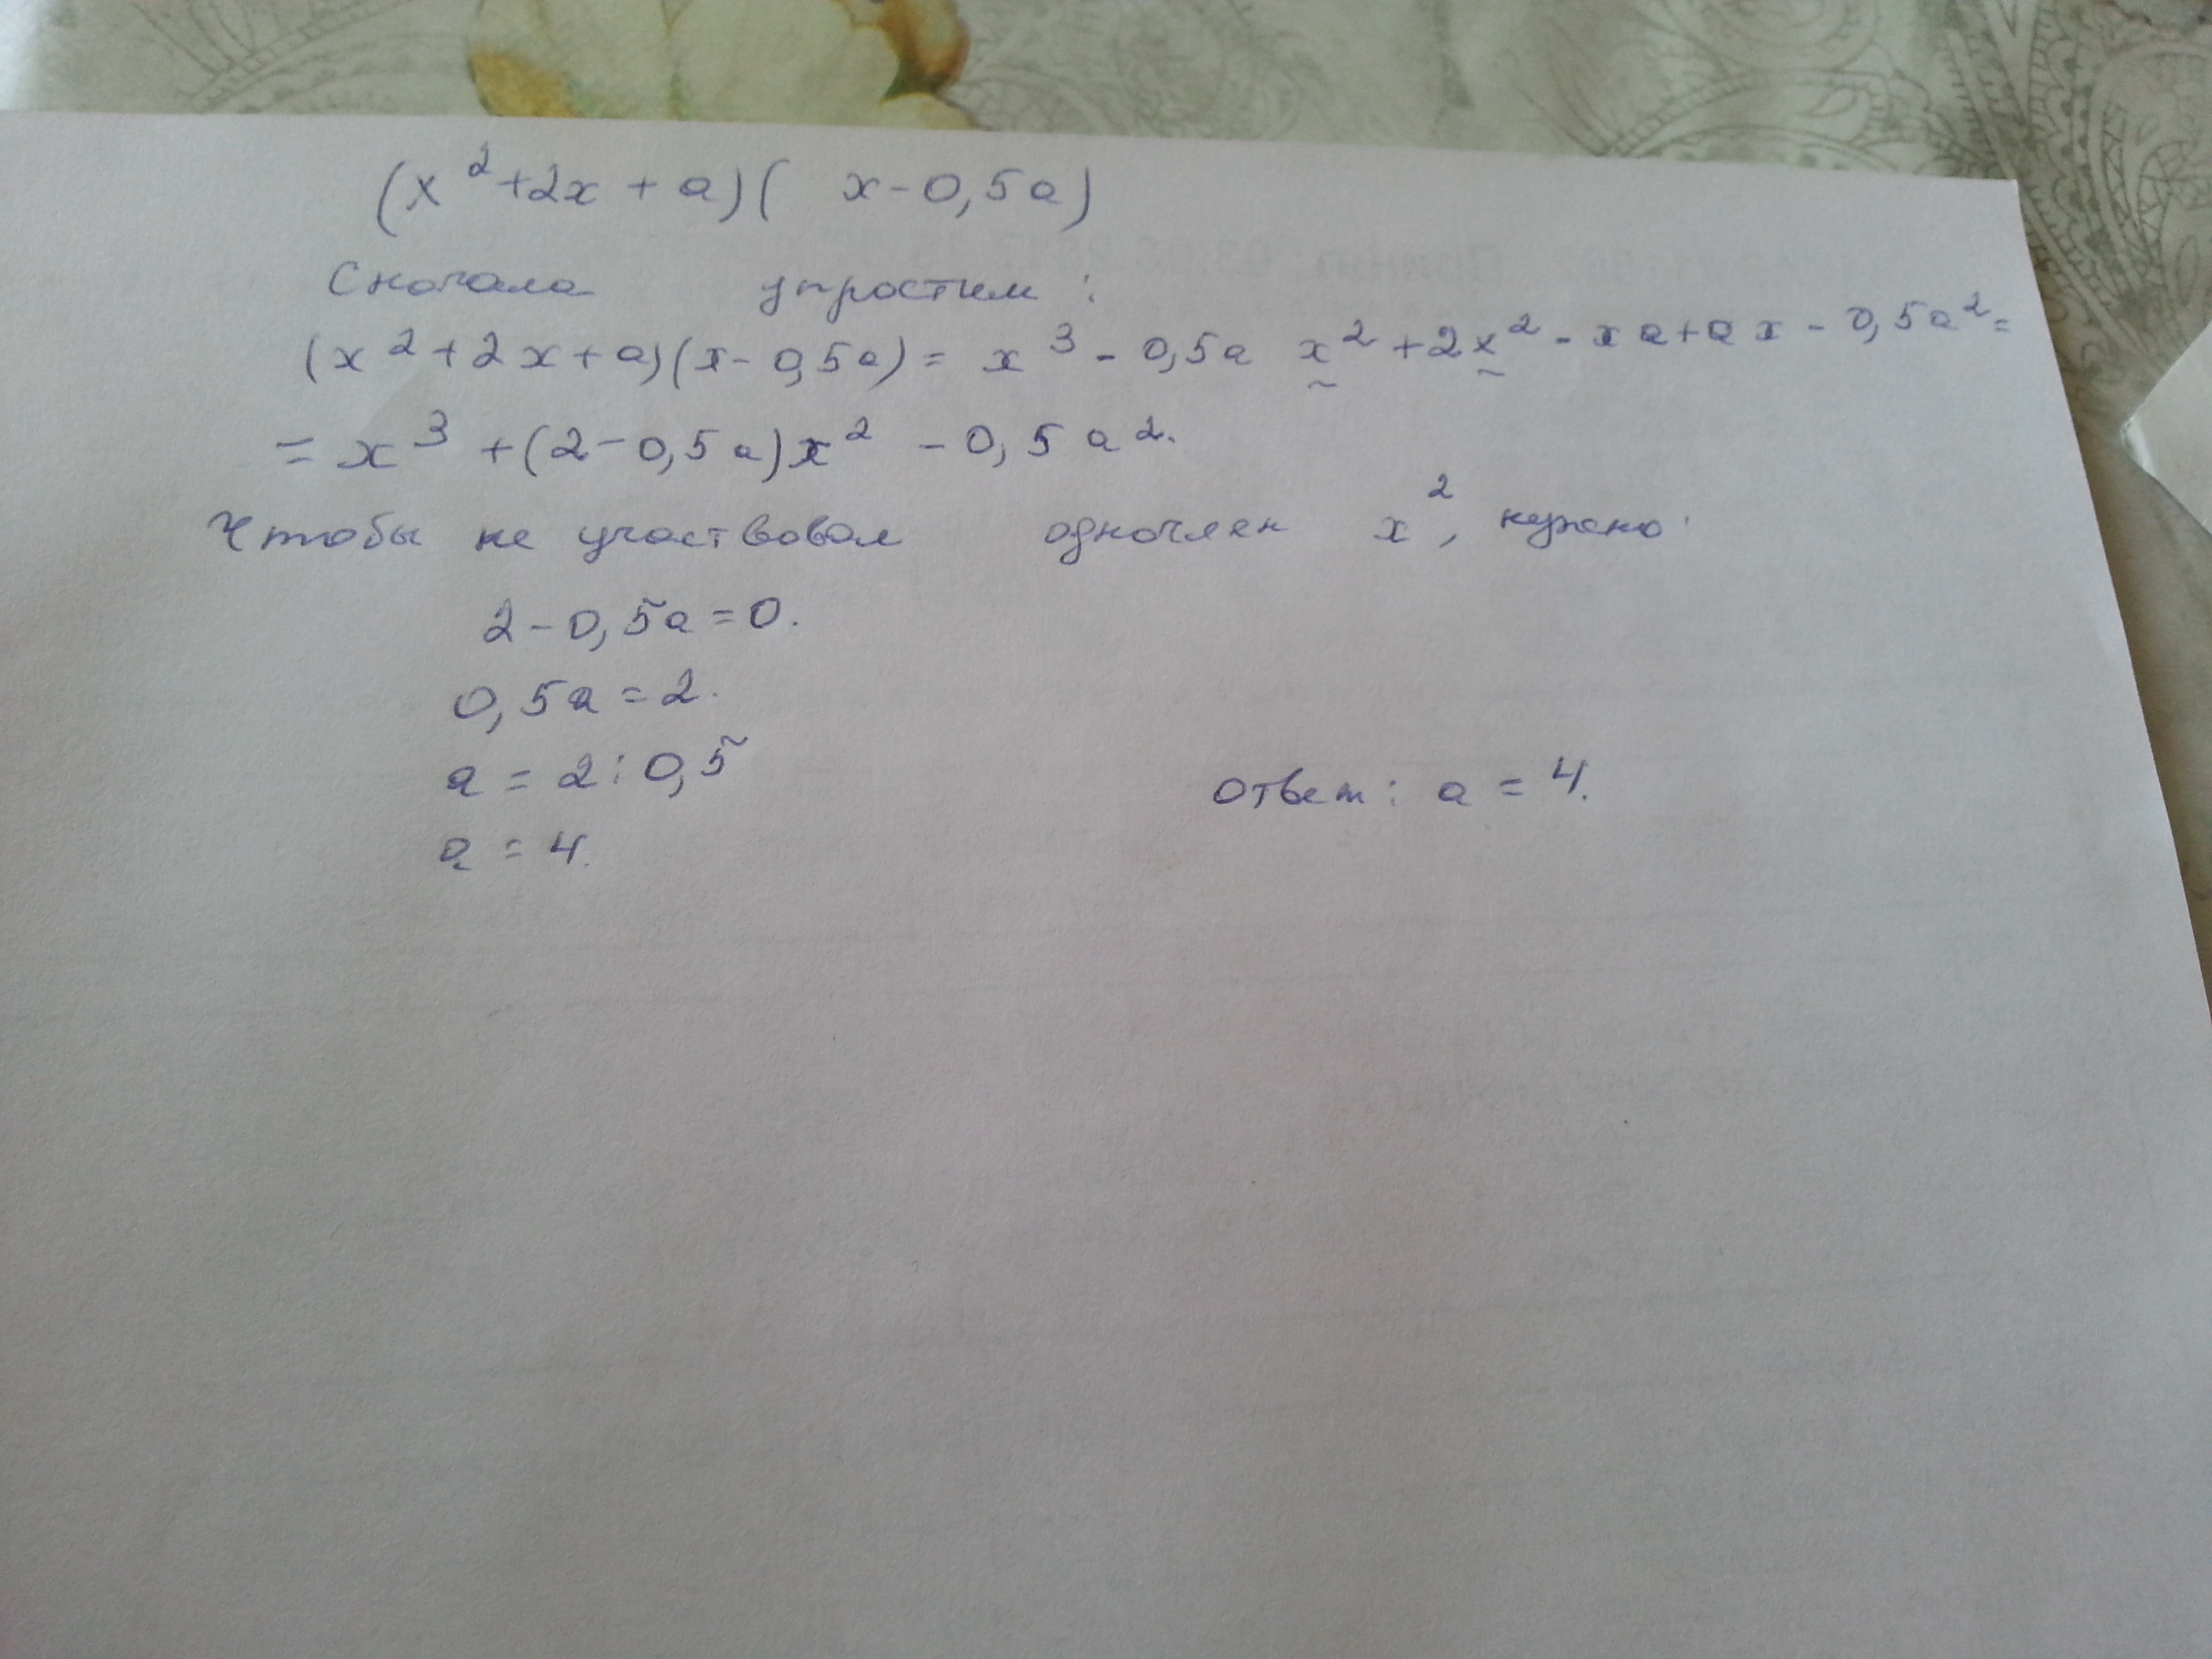 (x²+2x+a)( x-0,5a)
Сначала упростим:
(x²+2x+a)(x-0,5a)= x³-0,5a x²+2x²-xa+ax-0,5a²=
= x³+(2-0,5a)x²-0,5a².
Чтобы не участвовал одночлен x², нужно:
2-0,5a=0.
0,5a=2.
a=2:0,5
a=4.
Ответ: a=4.